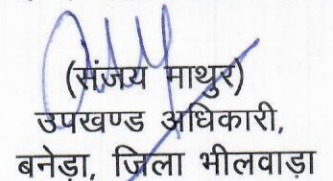 (संजय माथुर)
उपखण्ड अधिकारी,
बनेडा, जिला भीलवाडा